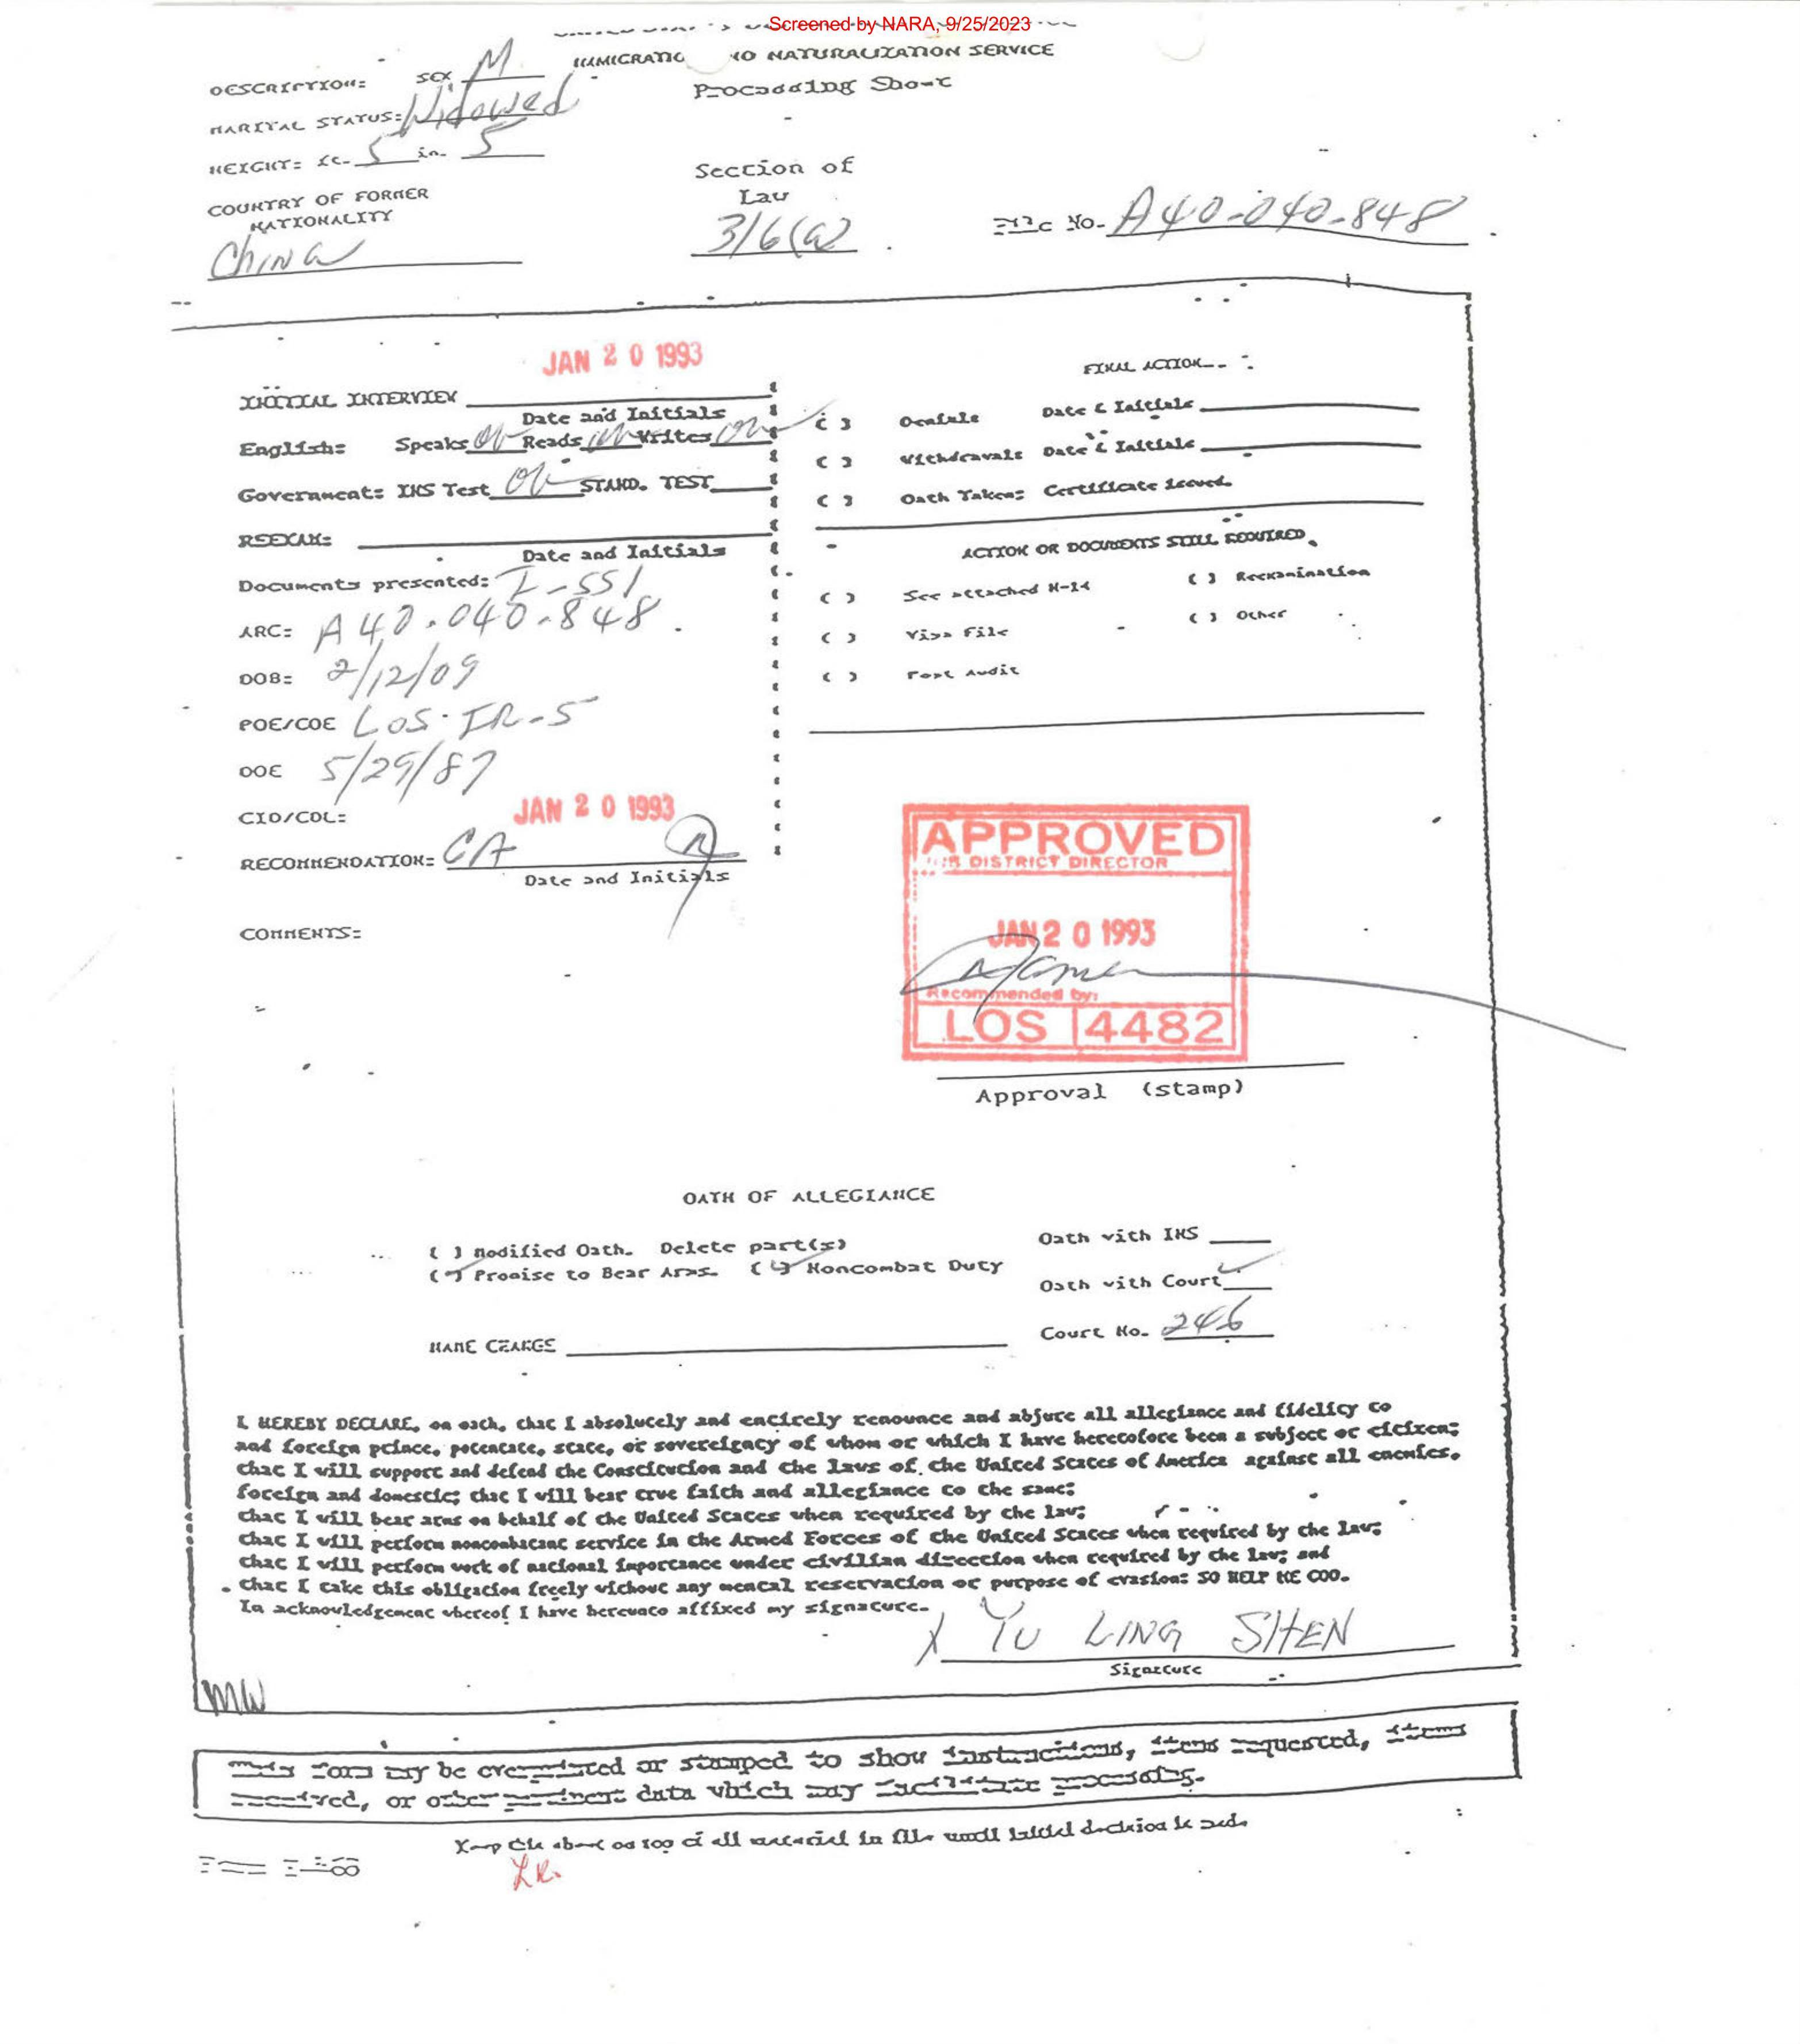 Screened by NARA, 9/25/2023
IMMIGRATIO NO NATURALIZATION SERVICE
Processing Sheet
DESCRIPTION: SEX M
MARITAL STATUS: Widowed
HEIGHT: ft. 5 in. 5
COUNTRY OF FORMER
NATIONALITY
China
Section of
Law
316(a)
File No. A40-040-848
JAN 20 1993
INITIAL INTERVIEW
Date and Initials
English: Speaks Reads Writes
Government: INS Test STAND. TEST
REEXAM:
Date and Initials
Documents presented: I-551
ARC: A40-040-848
DOB: 2/12/09
POE/COE LOS-IR-5
DOE 5/29/87
CID/COL: JAN 20 1993
RECOMMENDATION: CA
Date and Initials
COMMENTS:
FINAL ACTION
( ) Denials Date & Initials
( ) Withdrawals Date & Initials
( ) Oath Taken: Certificate Issued
ACTION OR DOCUMENTS STILL REQUIRED
( ) See attached N-14 ( ) Reexamination
( ) Visa File ( ) Other
( ) Post Audit
APPROVED
DISTRICT DIRECTOR
JAN 20 1993
Recommended by:
LOS 4482
Approval (stamp)
OATH OF ALLEGIANCE
( ) Modified Oath. Delete part(s) Oath with INS
( ) Promise to Bear Arms. ( ) Noncombat Duty
Oath with Court
Court No. 246
NAME CHANGE
I HEREBY DECLARE, on oath, that I absolutely and entirely renounce and abjure all allegiance and fidelity to
and foreign prince, potentate, state, or sovereignty of whom or which I have heretofore been a subject or citizen;
that I will support and defend the Constitution and the laws of the United States of America against all enemies,
foreign and domestic; that I will bear true faith and allegiance to the same;
that I will bear arms on behalf of the United States when required by the law;
that I will perform noncombatant service in the Armed Forces of the United States when required by the law;
that I will perform work of national importance under civilian direction when required by the law; and
that I take this obligation freely without any mental reservation or purpose of evasion: SO HELP ME GOD.
In acknowledgement whereof I have hereunto affixed my signature.
X YU LING SHEN
Signature
MW
This form may be overprinted or stamped to show instructions, items requested, items
received, or other pertinent data which may facilitate processing.
Keep this sheet on top of all material in file until initial decision is made